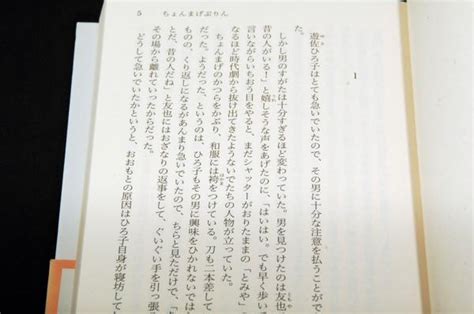 5 ちょんまげぷりん
1
遊佐ひろ子はとても急いでいたので、その男に十分な注意を払うことがで
しかし男のすがたは十分すぎるほど変わっていた。男を見つけたのは友也
昔の人がいる！」と嬉しそうな声をあげたのに、「はいはい。でも早く歩い
言いながらいちおう目をやると、まだシャッターがおりたままの「とみや」
なるほど時代劇から抜け出てきたようないでたちの人物が立っていた。
ちょんまげのかつらをかぶり、和服には袴をつけている。刀も二本差して
だった。ようだった、というのは、ひろ子もその男に興味をひかれないでは
もの、くり返しになるがあんまり急いでいたので、ちらと見ただけで、
とだ、昔の人だね」と友也にはおざなりの返事をして、ぐいぐい手を引っ張
その場から離れていったからだった。
どうして急いでいたかというと、おおもとの原因はひろ子自身が寝坊して